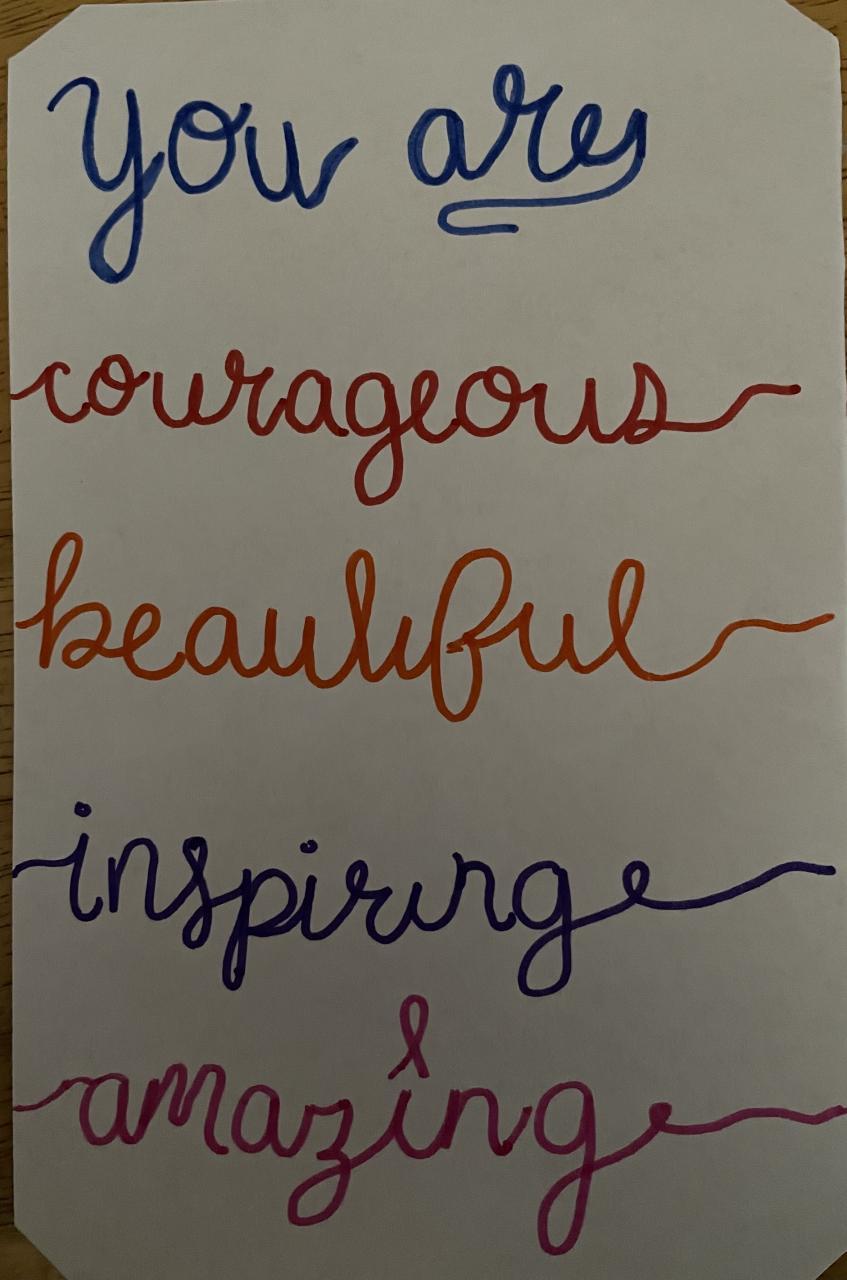 you are
courageous
beautiful
inspiring
amazing